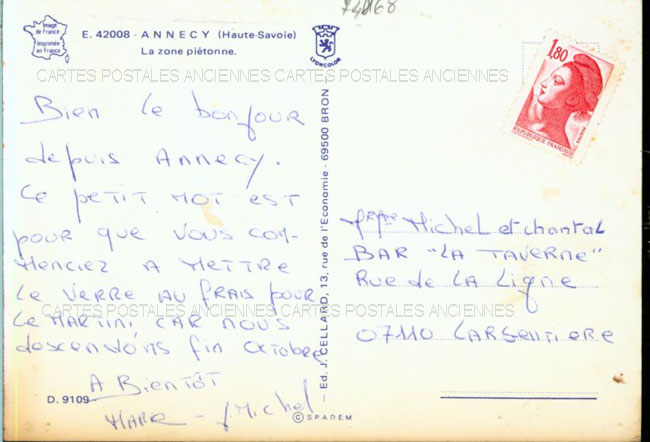 74068
Image
de France
Imprimée
en France
E. 42008 - ANNECY (Haute-Savoie)
La zone piétonne.
LYONCOLOR
1,80
REPUBLIQUE FRANÇAISE
CARTES POSTALES ANCIENNES CARTES POSTALES ANCIENNES
Bien le bonjour
depuis ANNECY.
CE PETIT MOT EST
POUR QUE VOUS COM-
MENCIEZ A METTRE
LE VERRE AU FRAIS POUR
LE MARTINI, CAR NOUS
descendons fin octobre
A BIENTÔT
MARC - Michel
D. 9109
CARTES POSTALES ANCIENNES CARTES POSTALES ANCIENNES
Ed. J. CELLARD, 13, rue de l'Economie - 69500 BRON
© S.P.A.D.E.M.
Michel et chantal
BAR "LA TAVERNE"
Rue de LA Ligne
07110 LARGENTIERE